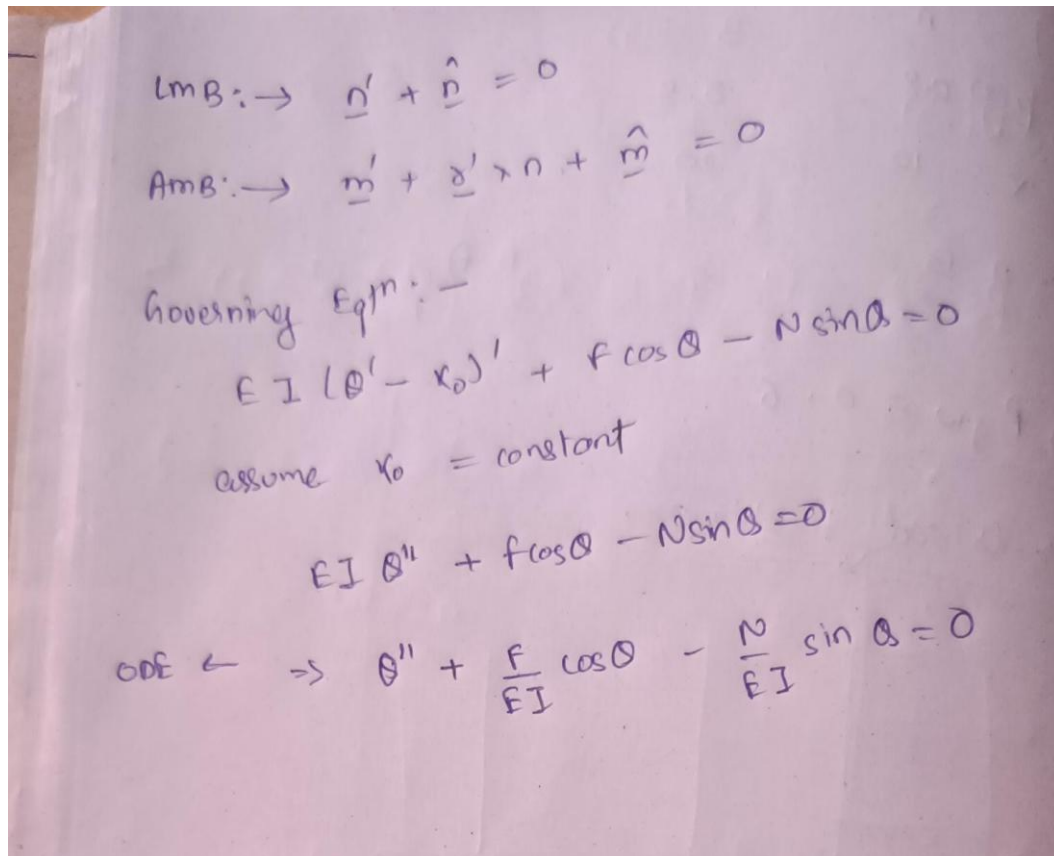 LMB :→ n' + n̂ = 0
AMB :→ m' + r' × n + m̂ = 0
Governing Eqtn : –
EI (θ' – κ₀)' + F cos θ – N sin θ = 0
assume κ₀ = constant
EI θ'' + F cos θ – N sin θ = 0
ODE ← ⇒ θ'' + F/EI cos θ – N/EI sin θ = 0